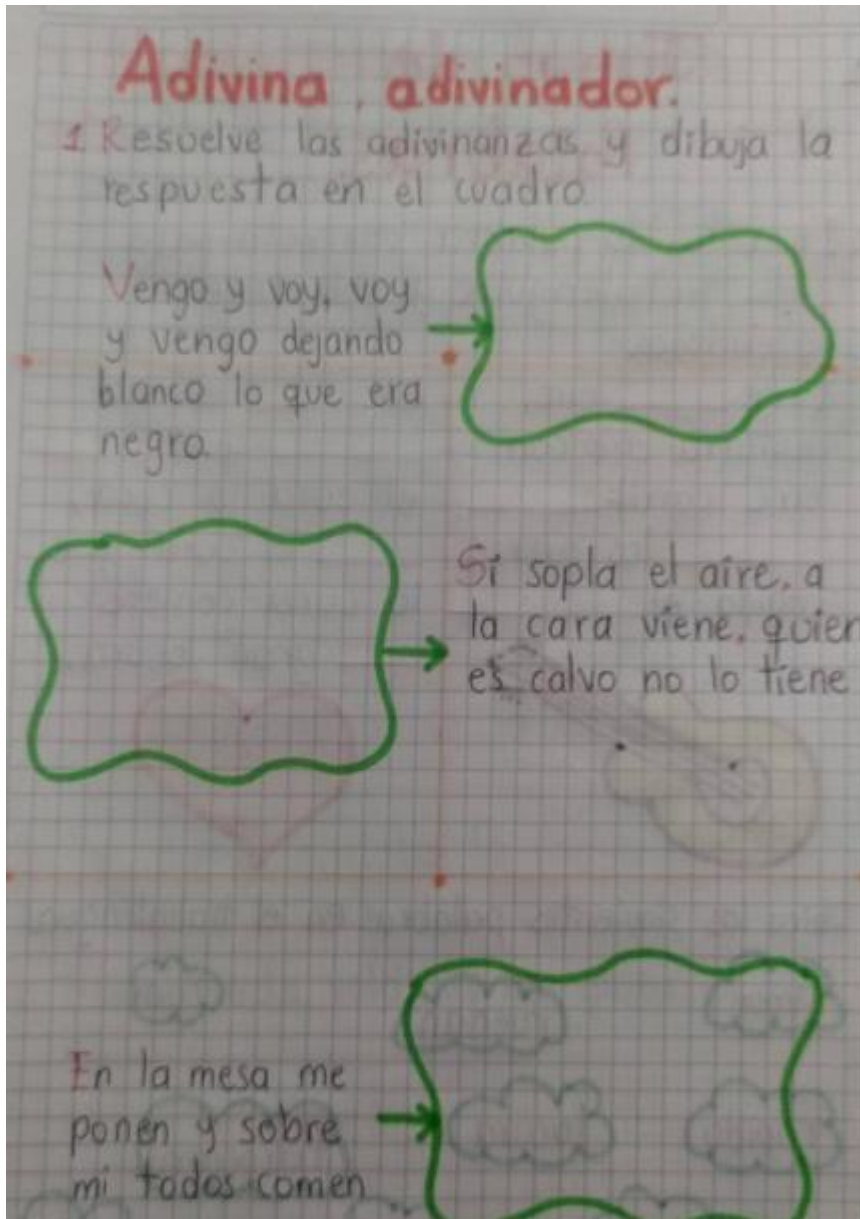 Adivina, adivinador.
1 Resuelve las adivinanzas y dibuja la
respuesta en el cuadro
Vengo y voy, voy
y vengo dejando
blanco lo que era
negro.
Si sopla el aire, a
la cara viene, quien
es calvo no lo tiene
En la mesa me
ponen y sobre
mi todos comen